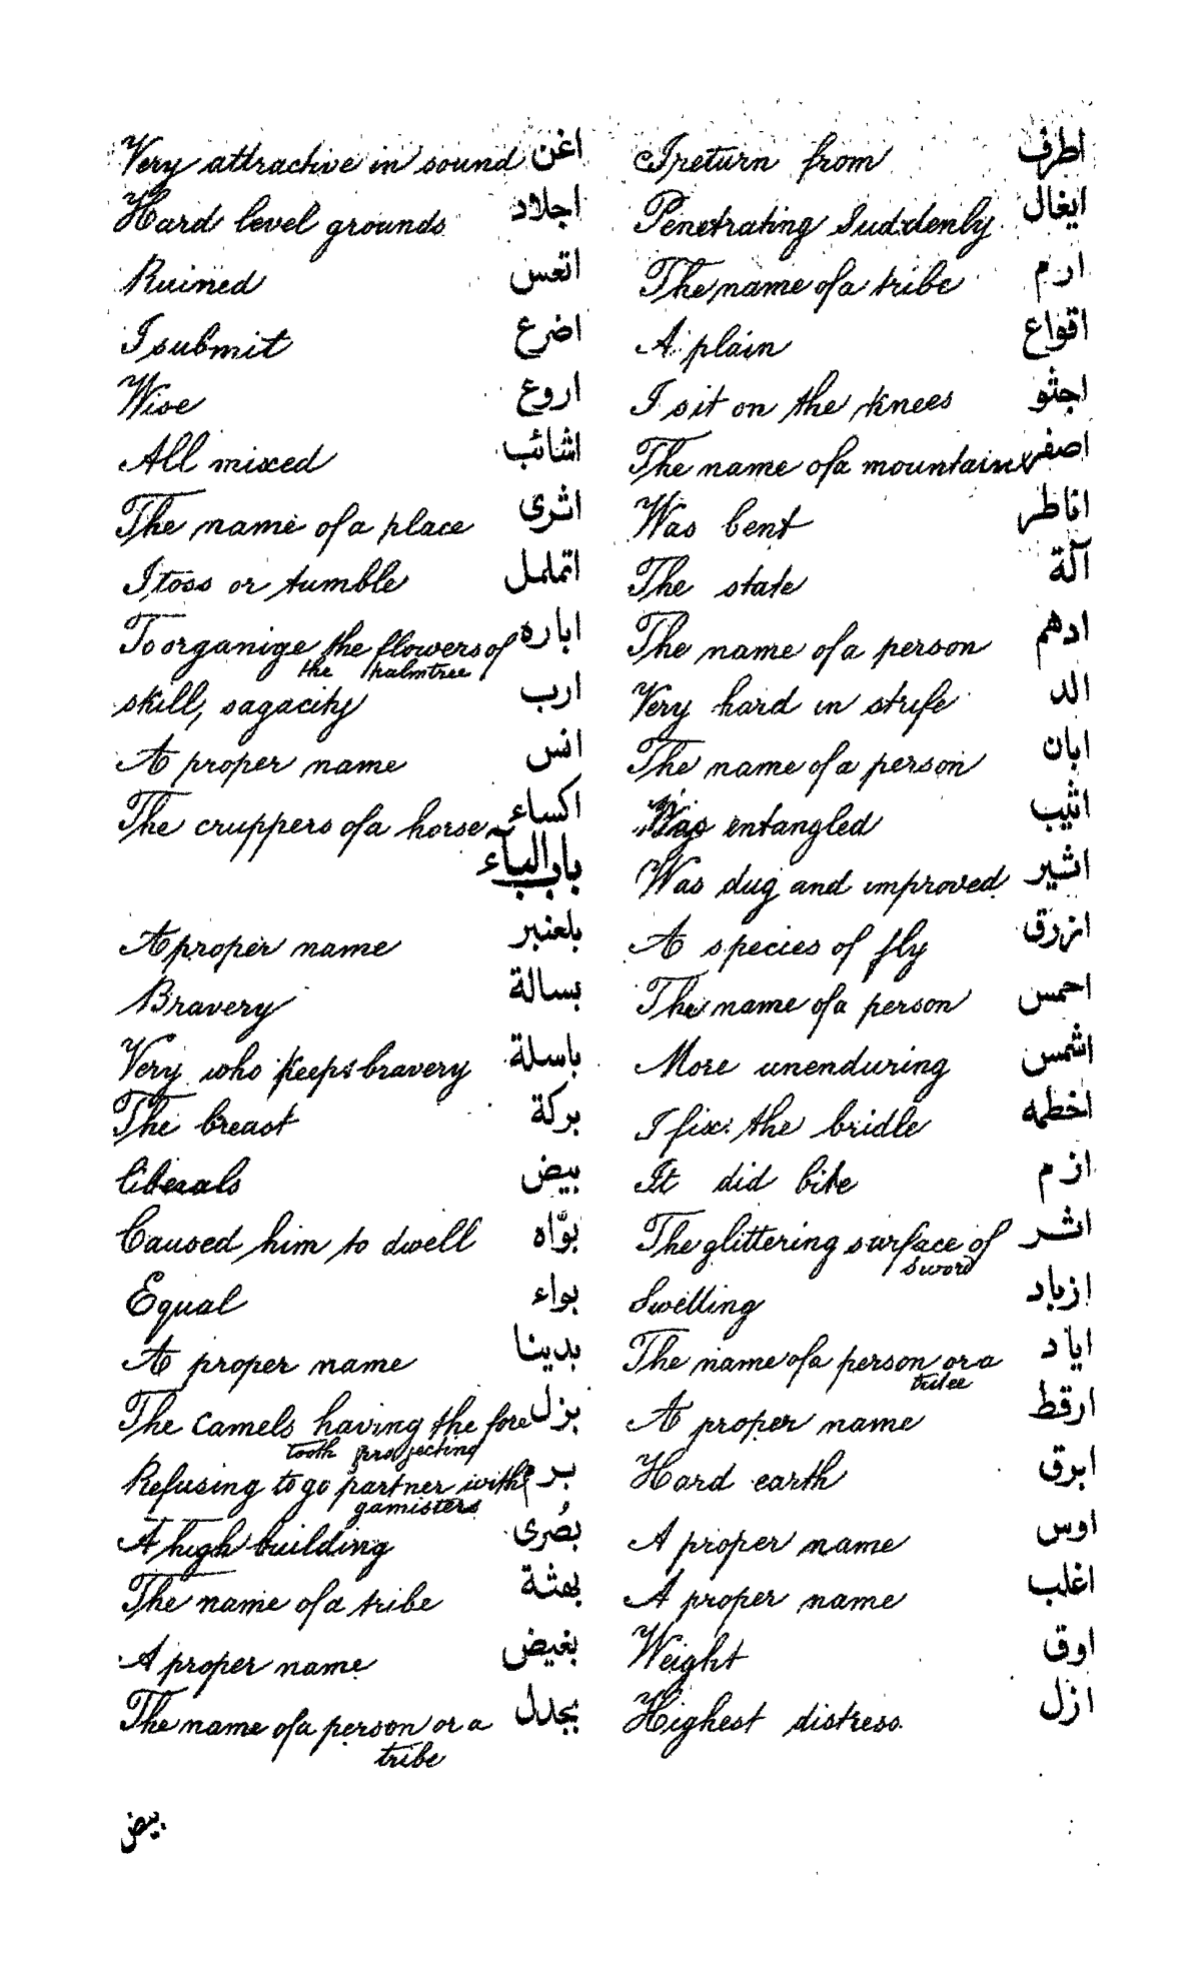 اطرف I return from
ايغال Penetrating Suddenly
ارم The name of a tribe
اقواع A plain
اجثو I sit on the knees
اصفر The name of a mountain
اناطر Was bent
آلة The state
ادهم The name of a person
الد Very hard in strife
ابان The name of a person
اثيب Was entangled
اشير Was dug and improved
ازرق A species of fly
احمس The name of a person
اشمس More unenduring
اخطمه I fix the bridle
ازم It did bite
اثر The glittering surface of
Sword
ازباد Swelling
اياد The name of a person or a
tribe
ارقط A proper name
ابرق Hard earth
اوس A proper name
اغلب A proper name
اوق Weight
ازل Highest distress
اغن Very attractive in sound
اجلاد Hard level grounds
اتعس Ruined
اضرع I submit
اروع Wise
اشائب All mixed
اثرى The name of a place
اتململ I toss or tumble
اباره To organige the flowers of
the palmtree
ارب skill, sagacity
انس A proper name
اكساء The cruppers of a horse
باب البآء
بلعنبر A proper name
بسالة Bravery
باسلة Very who keeps bravery
بركة The breast
بيض liberals
بوّاه Caused him to dwell
بواء Equal
بدينا A proper name
بزل The Camels having the fore
tooth projecting
برم Refusing to go partner with
gamisters
بصُرى A high building
بهثة The name of a tribe
بغيض A proper name
بجدل The name of a person or a
tribe
بيض